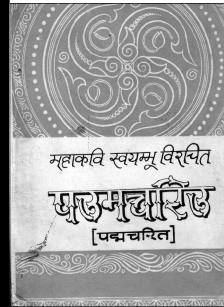 महाकवि स्वयम्भू विरचित
पउमचरिउ
[पद्मचरित]